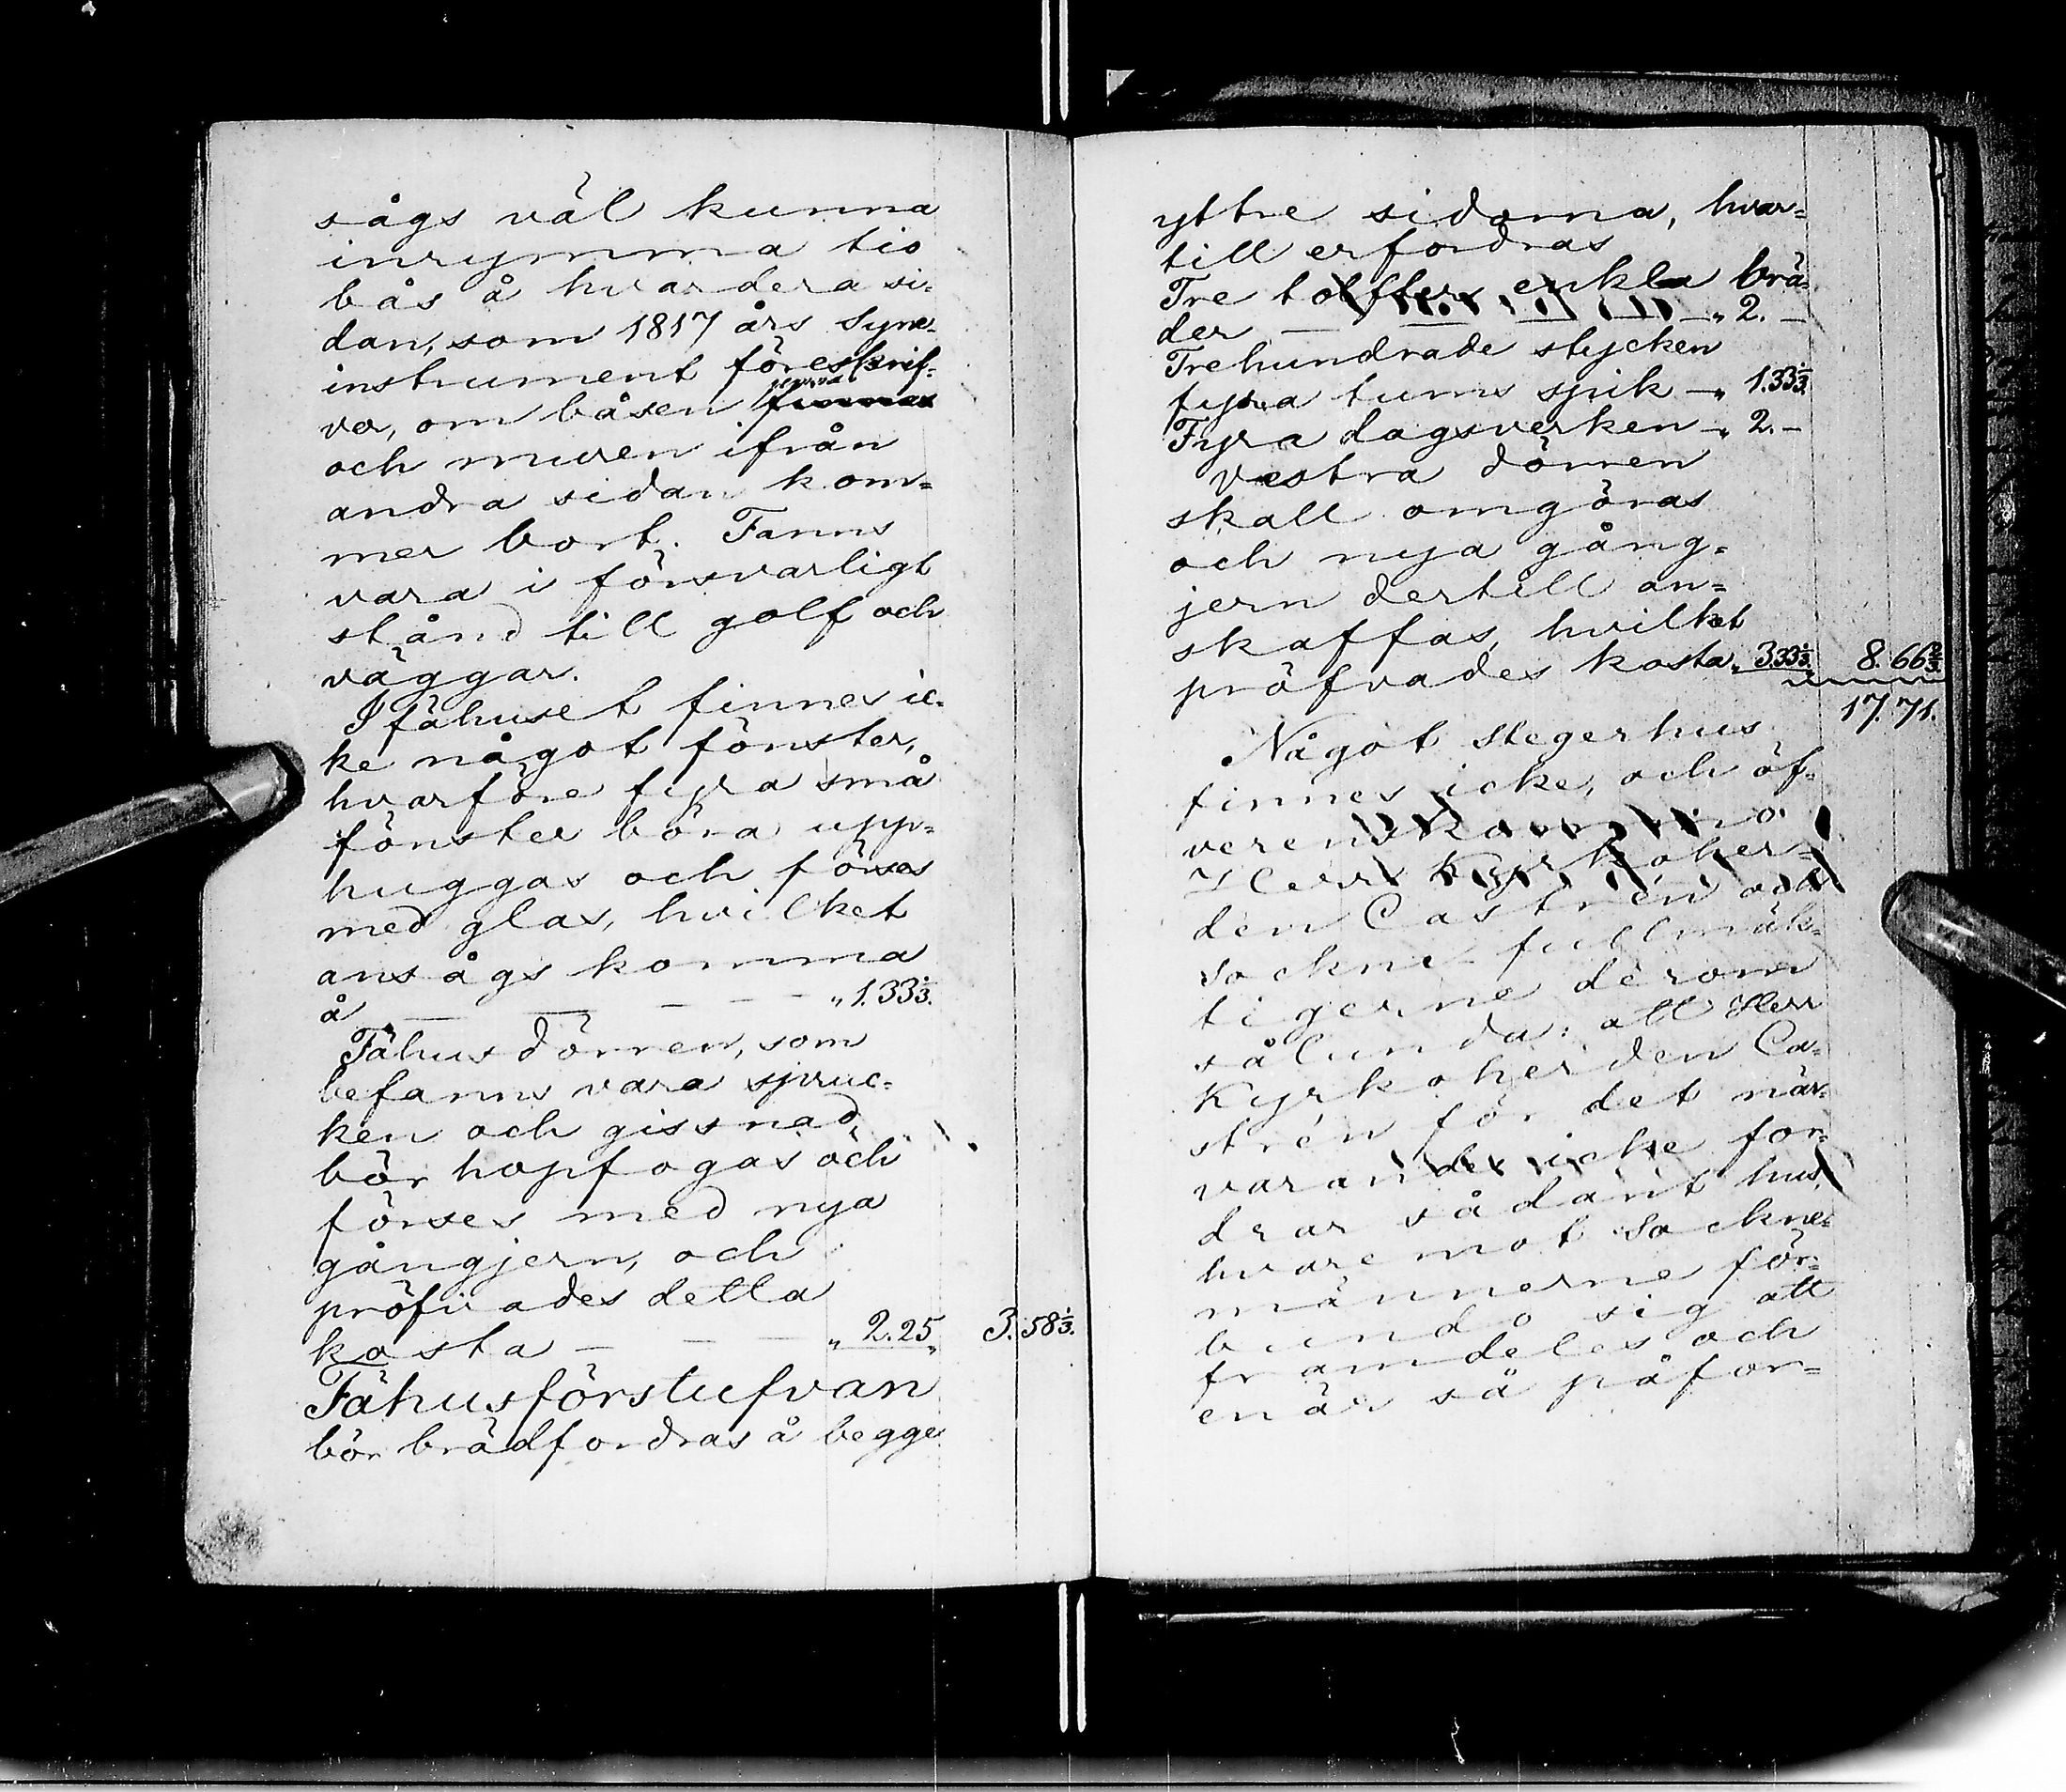 sågs väl kunna
inrymma tio
bås å hvardera si-
dan, som 1817 års Syne-
instrument föreskrif-
ver, om båsen finnas
och muren ifrån
andra sidan kom-
mer bort. Fanns
vara i försvarligt
stånd till golf och
väggar.
I fähuset finnes ic-
ke något fönster,
hvarföre fyra små
fönster böra upp-
huggas och förses
med glas, hvilket
ansågs komma
å — — — — " 1.33⅓.
Fähusdörren, som
befanns vara spruc-
ken och gissnad,
bör hopfogas och
förses med nya
gångjern, och
pröfvades detta
kosta — — — " 2.25. 3.58⅓.
Fähusförstufvan
bör brädfordras å begge
yttre sidorna, hvar-
till erfordras
Tre tolfter enkla brä-
der — — — — " 2. —
Trehundrade stycken
fyra tums spik — " 1.33⅓.
Fyra dagsverken — " 2. —
Vestra dörren
skall omgöras
och nya gång-
jern dertill an-
skaffas, hvilket
pröfvades kosta " 3.33⅓. 8.66⅔.
17.71.
Något stegerhus
finnes icke, och öf-
verenskommo
Herr Kyrkoher-
den Castrén och
sockne fullmäk-
tigerne derom
sålunda: att Herr
Kyrkoherden Ca-
strén för det när-
varande icke for-
drar sådant hus,
hvaremot Sockne-
männerne för-
bundo sig att
framdeles och
enär så påfor-